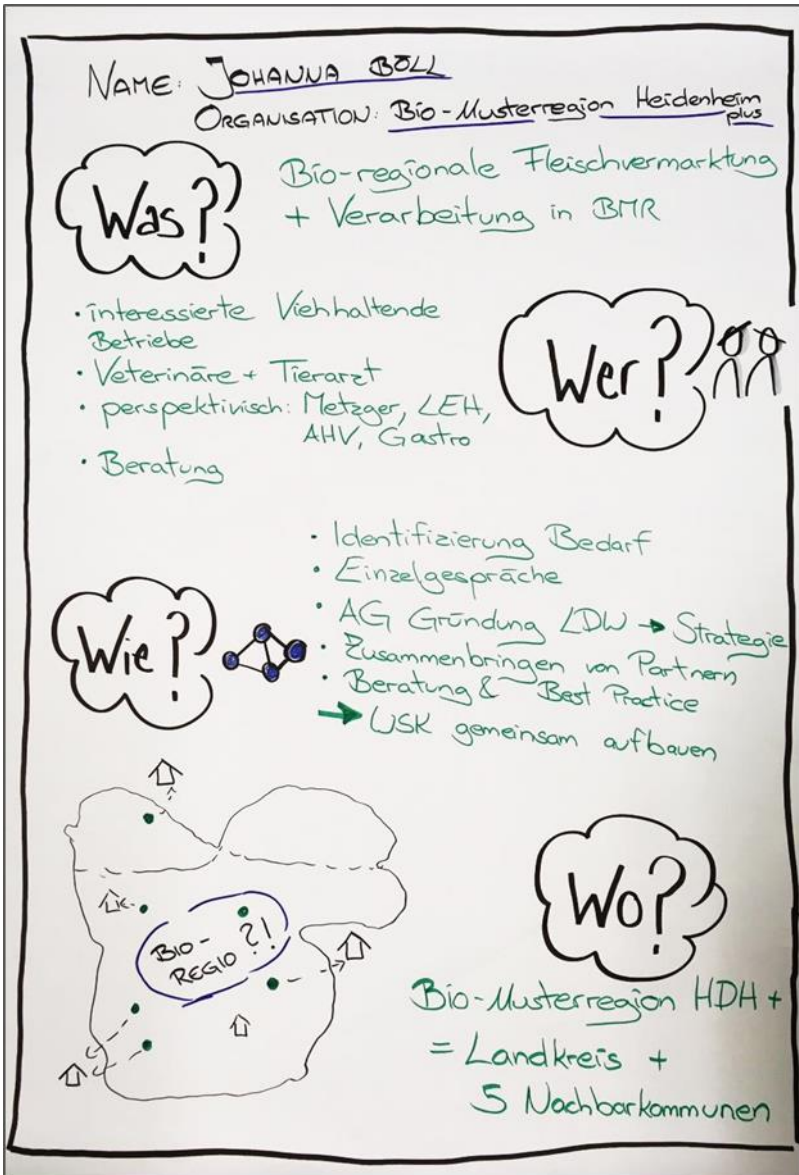 NAME: JOHANNA BÖLL
ORGANISATION: Bio-Musterregion Heidenheim
plus
Was?
Bio-regionale Fleischvermarktung
+ Verarbeitung in BMR
• interessierte Viehhaltende
Betriebe
• Veterinäre + Tierarzt
• perspektivisch: Metzger, LEH,
AHV, Gastro
• Beratung
Wer?
Wie?
• Identifizierung Bedarf
• Einzelgespräche
• AG Gründung LDW → Strategie
• Zusammenbringen von Partnern
• Beratung & Best Practice
→ WSK gemeinsam aufbauen
BIO-
REGIO ?!
Wo?
Bio-Musterregion HDH +
= Landkreis +
5 Nachbarkommunen